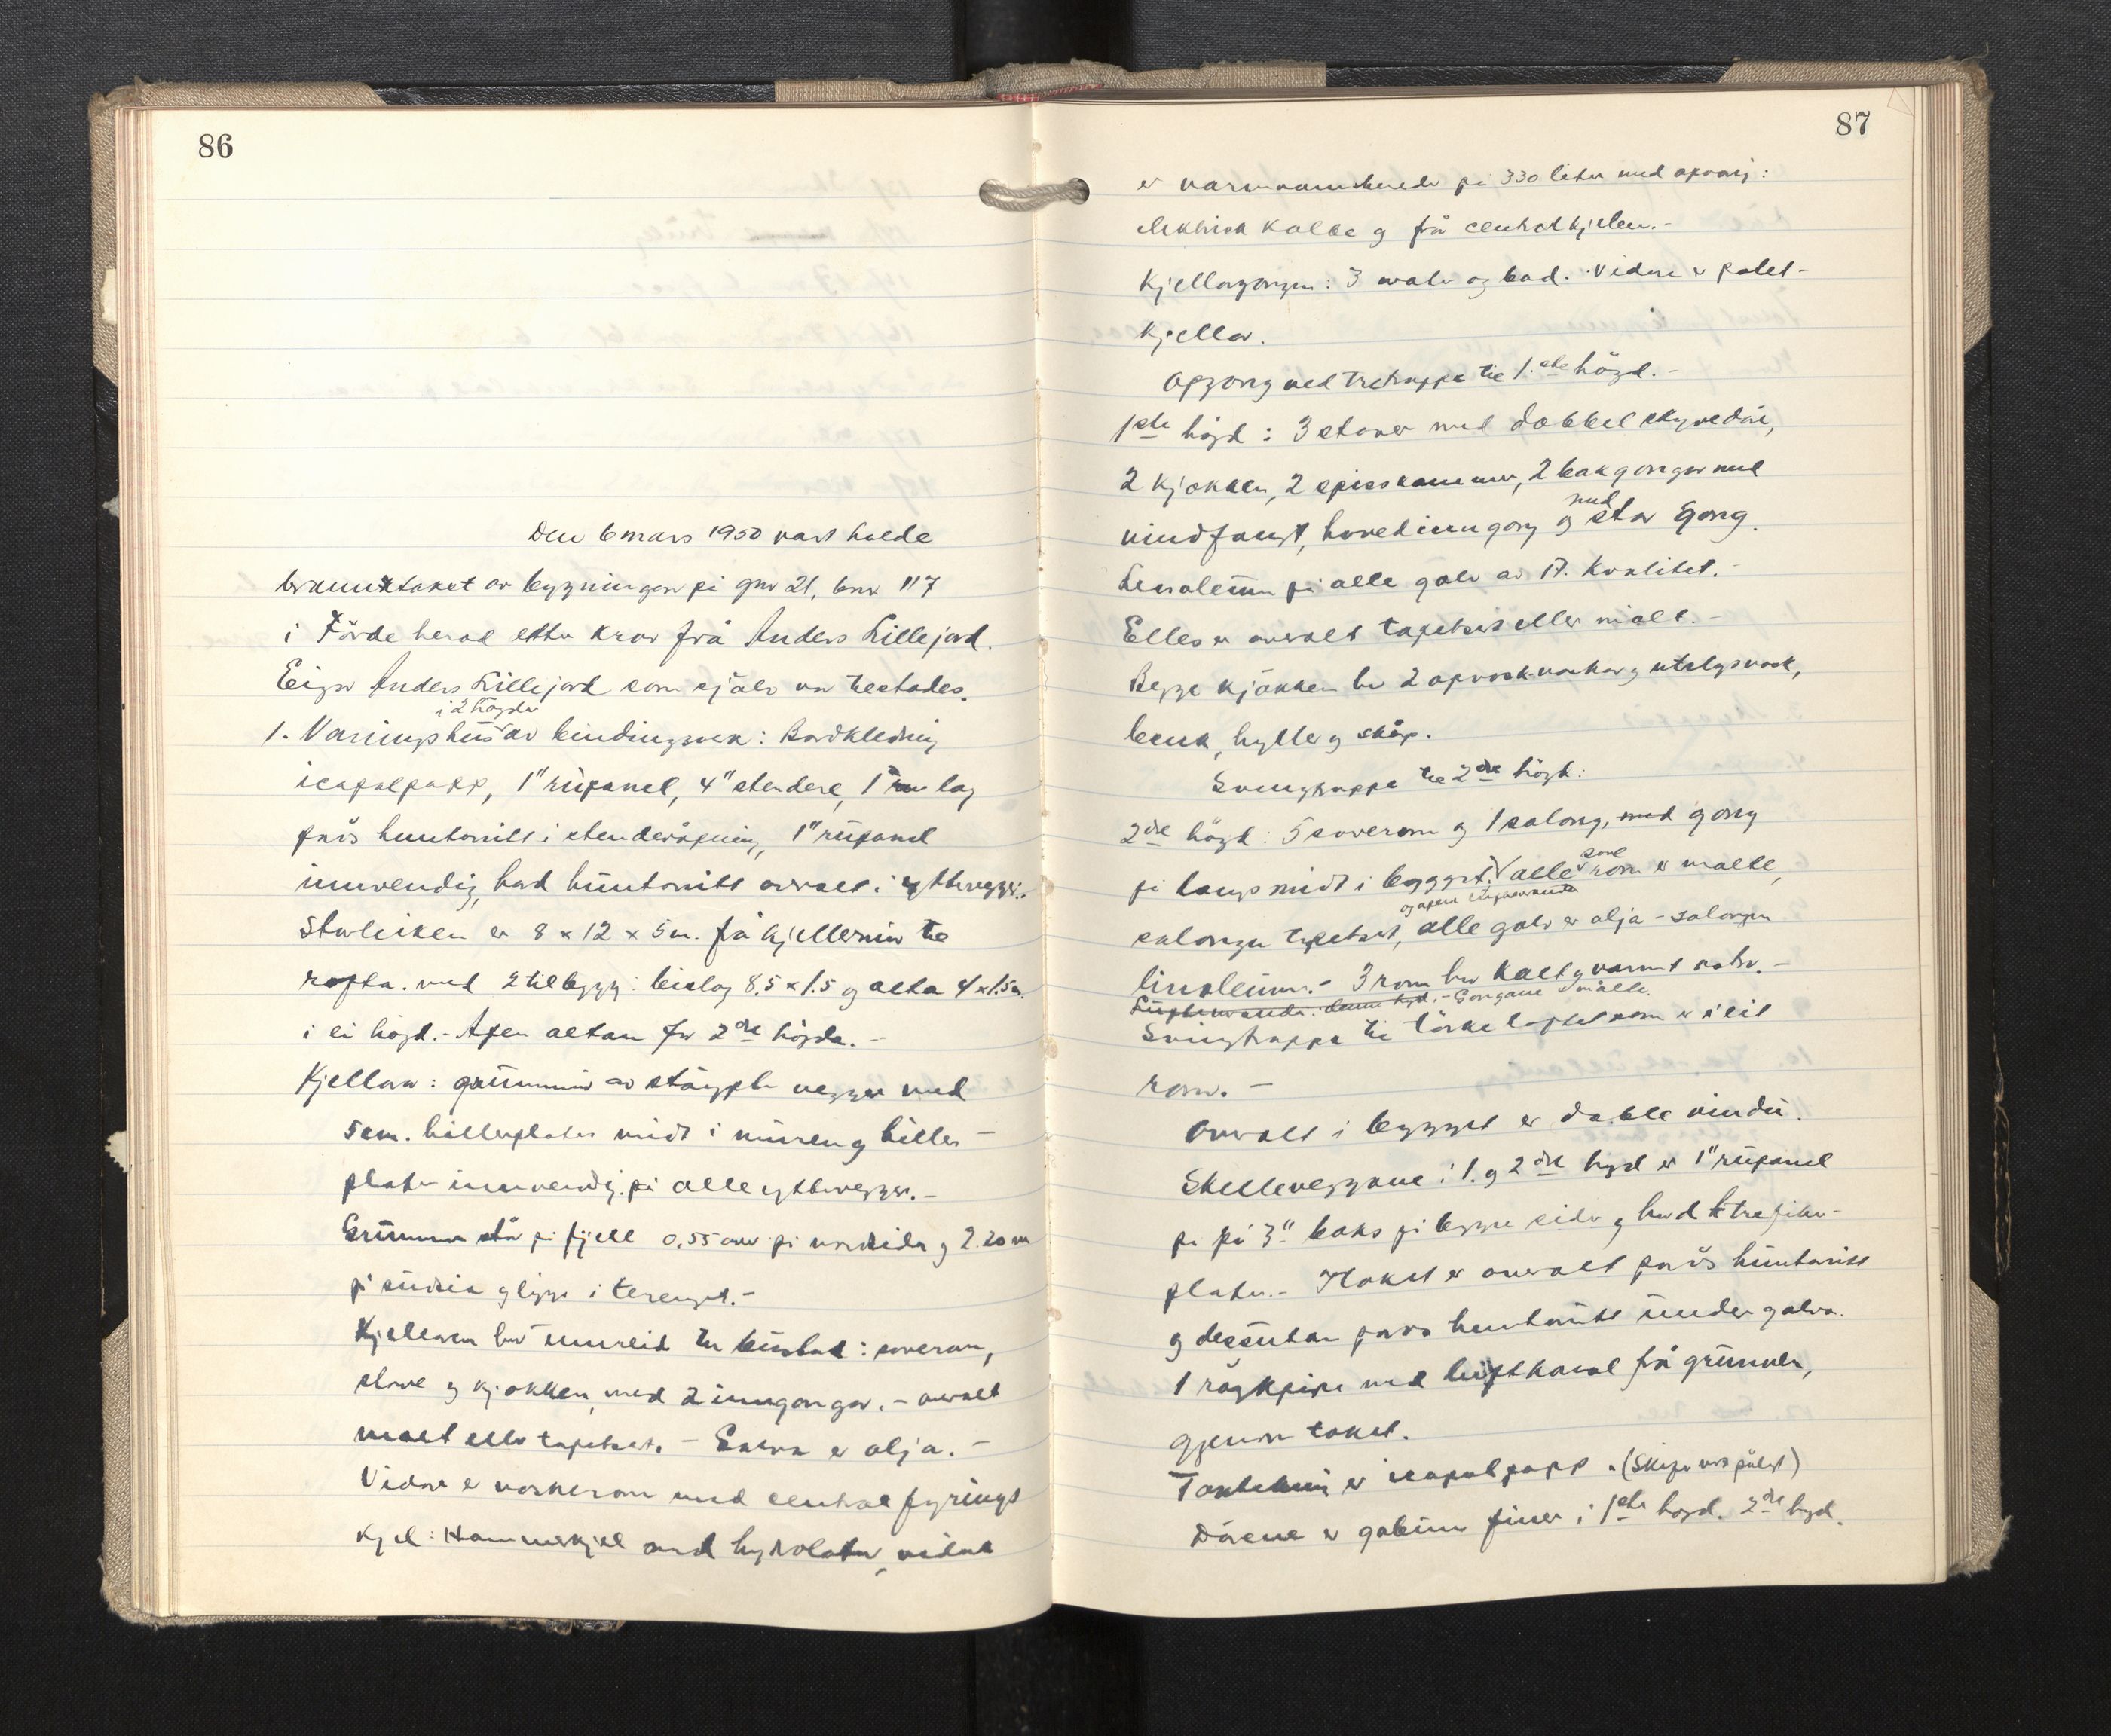 86
Den 6 mars 1950 vart halde
branntaket av bygningan på gnr 21, bnr 117
i Förde herad etter krav frå Anders Lillejord.
Eigar Anders Lillejord som sjølv var tilstades.
i 2 högder
1. Våningshus av bindingsverk: Bordkledning
icapalpapp, 1" rupanel, 4" stendere, 1" lag
porös huntonitt i stenderåpning, 1" rupanel
innvendig, hard huntonitt overalt i yttervegg.
Storleiken er 8 x 12 x 5 m. frå kjellermur til
rafta. med 2 tilbygg: bislag 8,5 x 1.5 og alta 4 x 1.5 m.
i ei högd. - Åpen altan for 2dre högda. -
Kjellar: grunnmur av stöypte vegger med
5 cm. billerplater midt i muren og biller-
plater innvendig på alle yttervegger. -
Grunnen står på fjell 0,55 over på nordsida og 2.20 m
på sudsia og ligg i terenget. -
Kjellaren har innreid til bustad: soverom,
stove og kjökken, med 2 inngongar. - overalt
malt eller tapetsert. - Golva er olja. -
Vidare er vaskerom med sentral fyrings
kjel: Hammerkjel med hydrolator, vidare
87
er varmvannsbereder på 330 liter med opvarm:
elektrisk kolbe og frå centralkjelen. -
Kjellargongen: 3 matbu og bod. Vidare er potet-
kjellar.
Opgong ved tretrappe til 1.ste högd. -
1ste högd: 3 stover med dobbel skyvedör,
2 kjökken, 2 spisskammer, 2 bakgonger med
vindfangt, hovedinngong og med stor gong.
Linoleum på alle golv av A. Kvalitet. -
Elles er overalt tapetsert eller målt. -
Begge kjökken har 2 opvaskvaskar og utslagsvask,
benk, hylle og skåp.
Svingtrappe til 2dre högd:
2dre högd: 5 soverom og 1 salong, med gong
på langs midt i bygget. alle sove rom er malte,
og åpen
salongen tapetsert, alle golv er olja - salongen
linoleum. - 3 rom har kalt og varmt vatn. -
denne högd. - Gongane målte.
Svingtrappe til törkeloftet som er i eit
rom. -
Overalt i bygget er doble vindu.
Skilleveggane i 1. og 2dre högd er 1" rupanel
på 3" boks på begge sider og hard trefiber-
plater. - Taket er overalt porös huntonitt
og dessutan porös huntonitt under golva.
1 röykpipe med luftkanal frå grunnen,
gjenom taket.
Taktekkin er icapalpapp. (Skifer vert pålagt)
Dörene er gabon finer i 1ste högd. 2dre högd.